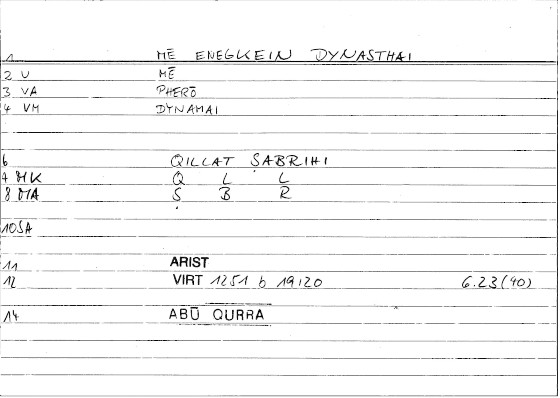 1 MĒ ENEGKEIN DYNASTHAI
2 V MĒ
3 VA PHERŌ
4 VM DYNAMAI
6 QILLAT ṢABRIHI
7 MK Q L L
8 MA Ṣ B R
10 SA
11 ARIST
12 VIRT 1251 b 19;20 6.23(40)
14 ABŪ QURRA